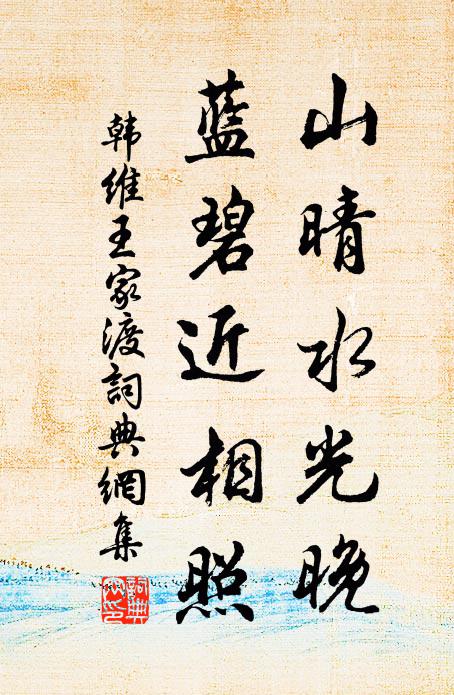 山晴水光晚
藍碧近相照
韩維王家渡詞典網集